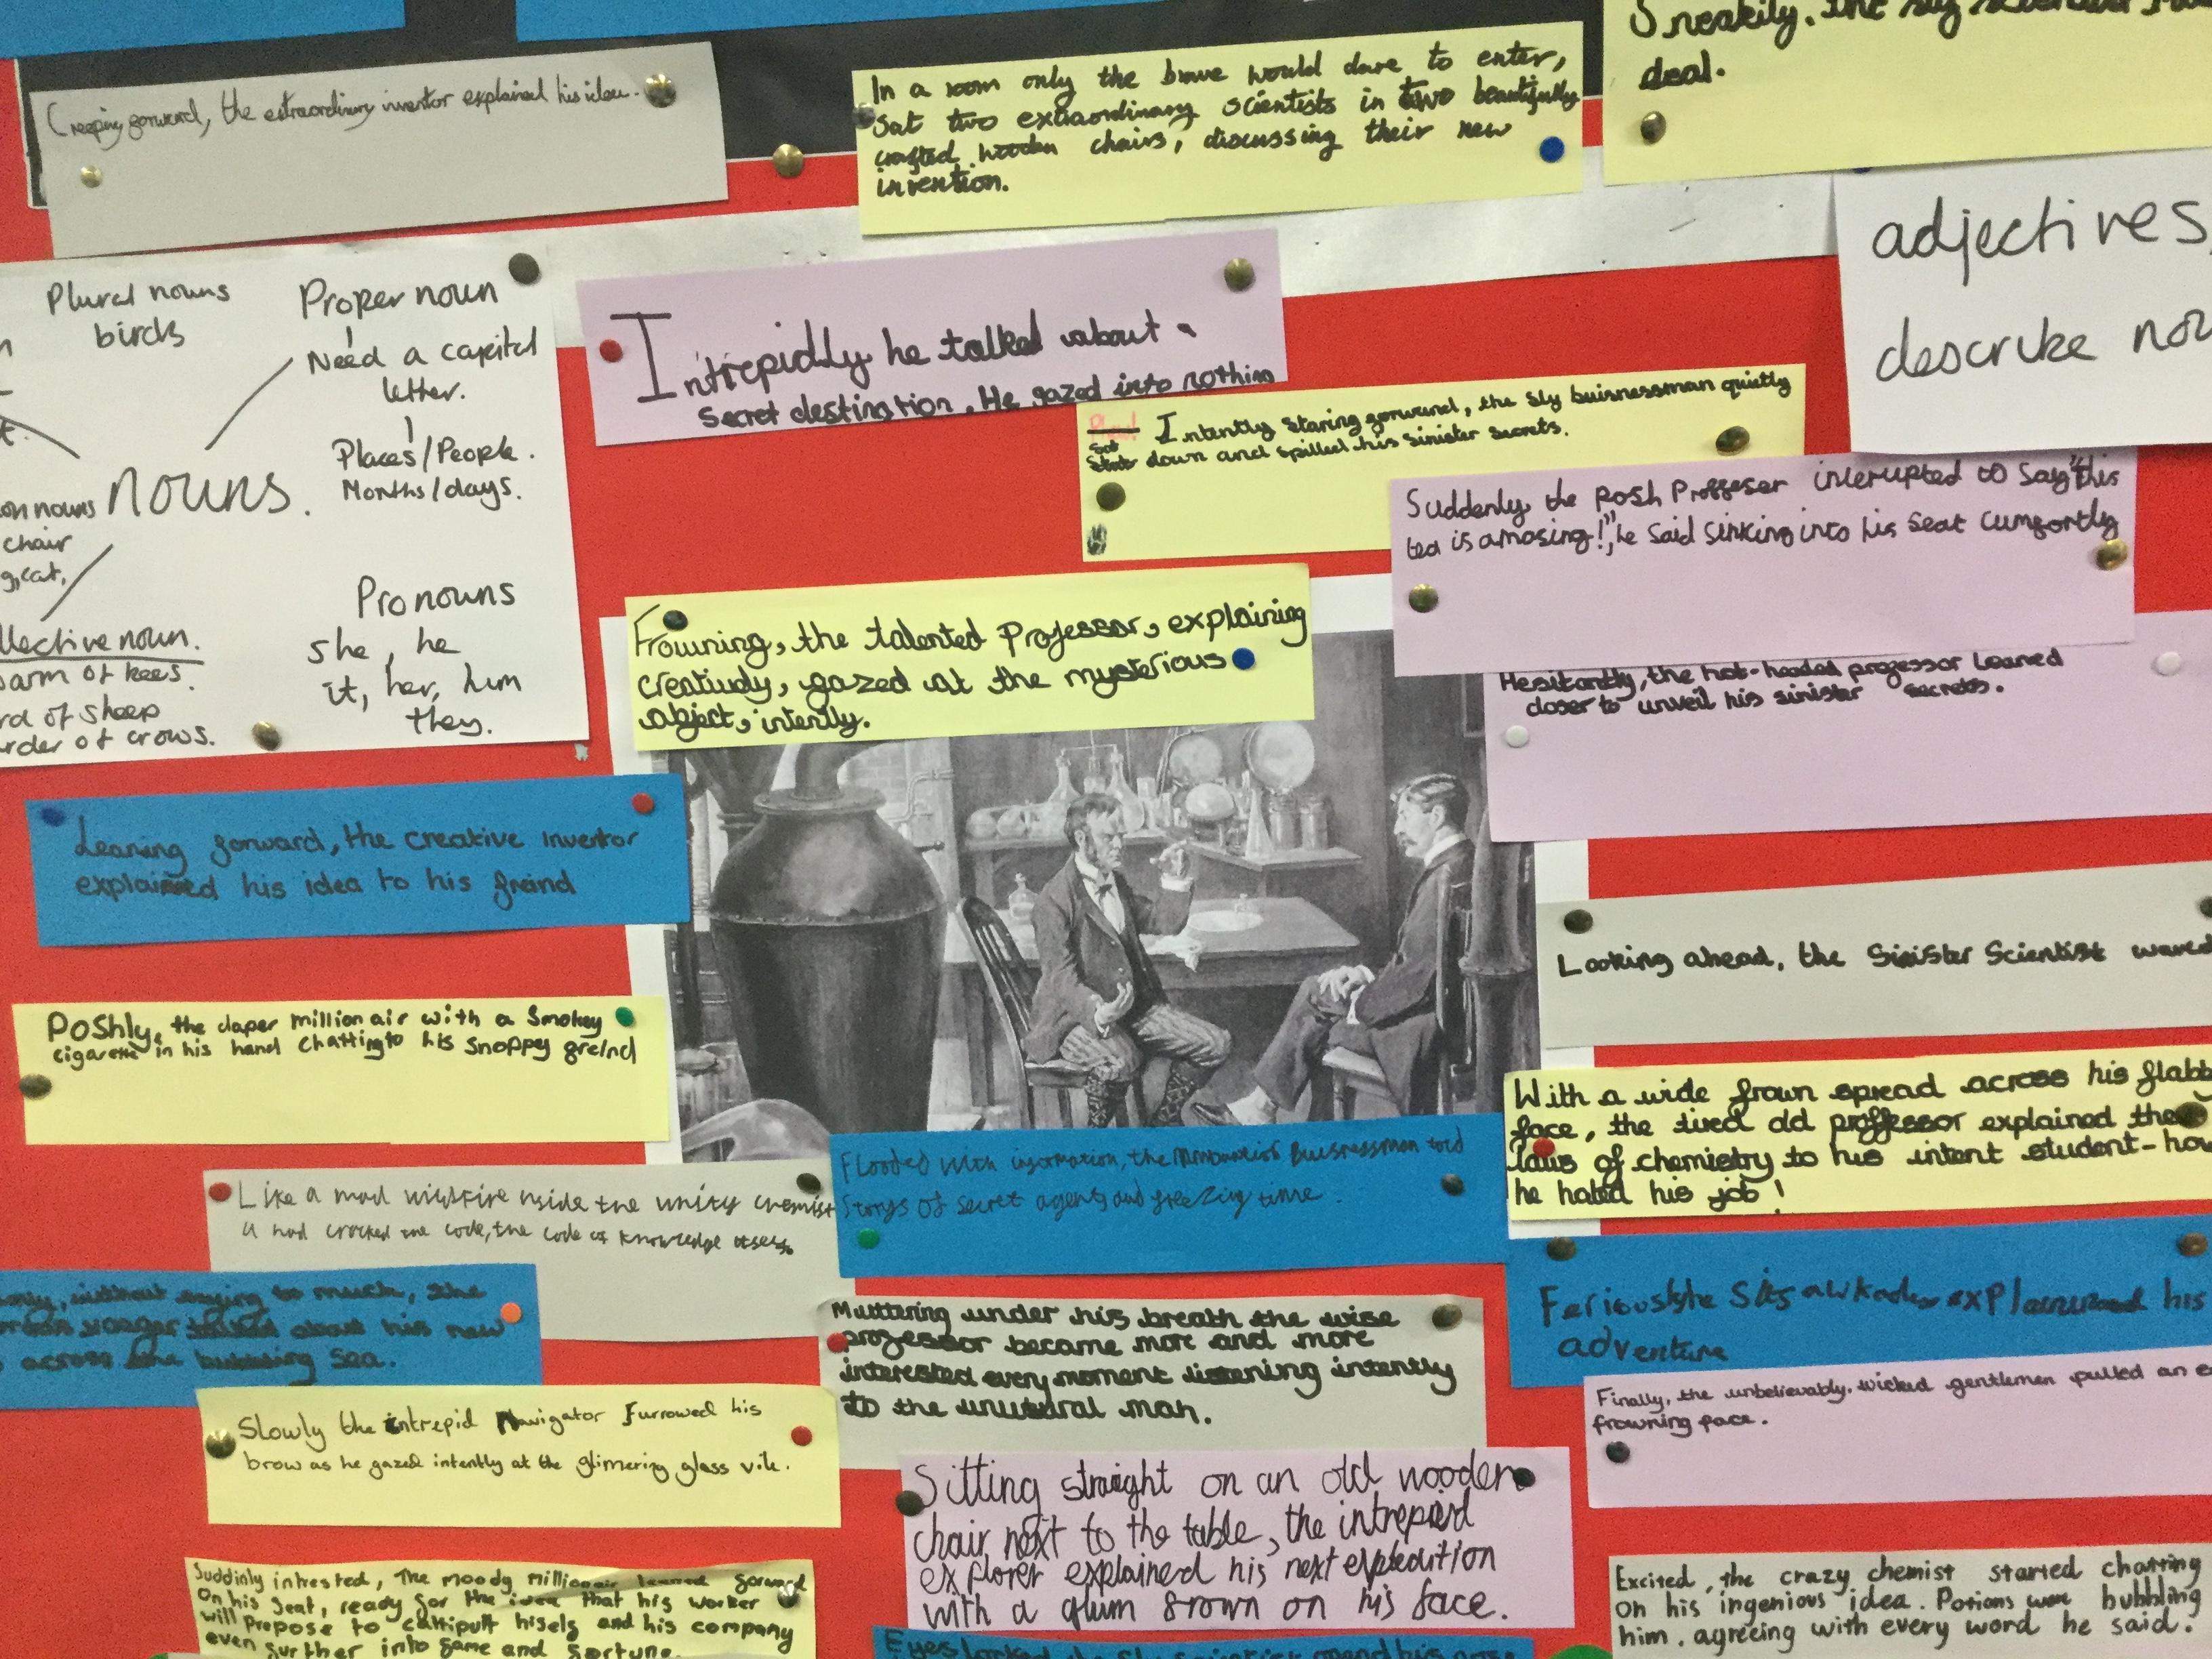 Creeping forward, the extraordinary inventor explained his idea.
In a room only the brave would dare to enter,
Sat two extraordinary scientists in two beautifully
crafted wooden chairs, discussing their new
invention.
Sneakily, the sly
deal.
adjectives,
describe
Plural nouns
birds
Proper noun
Need a capital
letter.
Places/People.
Months/days.
nouns.
nouns
chair
Pronouns
she, he
it, her, him
they.
noun.
of bees.
of sheep
of crows.
Intrepidly he talked about a
Secret destination. He gazed into nothing
Intently staring forward, the sly buisnessman quietly
Sat down and spilled his sinister secrets.
Suddenly, the posh Proffeser interupted to say "this
tea is amosing!", he said sinking into his seat cumfortly
Frowning, the talented Professor, explaining
creatively, gazed at the mysterious
object, intently.
Hesitantly, the hot-headed professor leaned
closer to unveil his sinister secrets.
Leaning forward, the creative inventor
explained his idea to his freind
Looking ahead, the Sinister Scientist
Poshly, the daper million air with a Smokey
cigarette in his hand chatting to his snoppy freind
With a wide frown spread across his
face, the tired old proffessor explained the
laws of chemistry to his intent student-how
he hated his job!
Like a mad wildfire inside the unity chemist
had cracked the code, the code of knowledge
Flooded with information, the Buisnessman told
Storys of secret agents and freezing time.
without saying to much, the
about his new
across the bubbling sea.
Muttering under his breath the wise
professor became more and more
interested every moment listening intently
to the unusual man.
sits his
adventure
Finally, the unbelievably, wicked gentlemen pulled an
frowning face.
Slowly the intrepid Navigator furrowed his
brow as he gazed intently at the glimering glass vile.
Sitting straight on an old wooden
chair next to the table, the intrepid
explorer explained his next expedition
with a glum frown on his face.
Suddinly intrested, The moody millionair leaned forward
On his seat, ready for the idea that his worker
will propose to cattipult hisels and his company
even further into fame and fortune.
Excited, the crazy chemist started chatting
on his ingenious idea. Potions were bubbling
him. agreeing with every word he said.
Eyes locked, the Sly Scientist